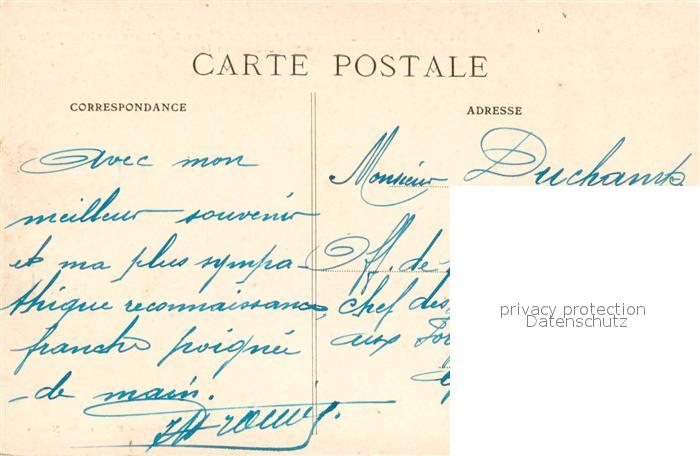 CARTE POSTALE
CORRESPONDANCE
ADRESSE
Avec mon
meilleur souvenir
et ma plus sympa-
thique reconnaissance,
franche poignée
-de main.
Monsieur
Off. de
chef des
aux
privacy protection
Datenschutz